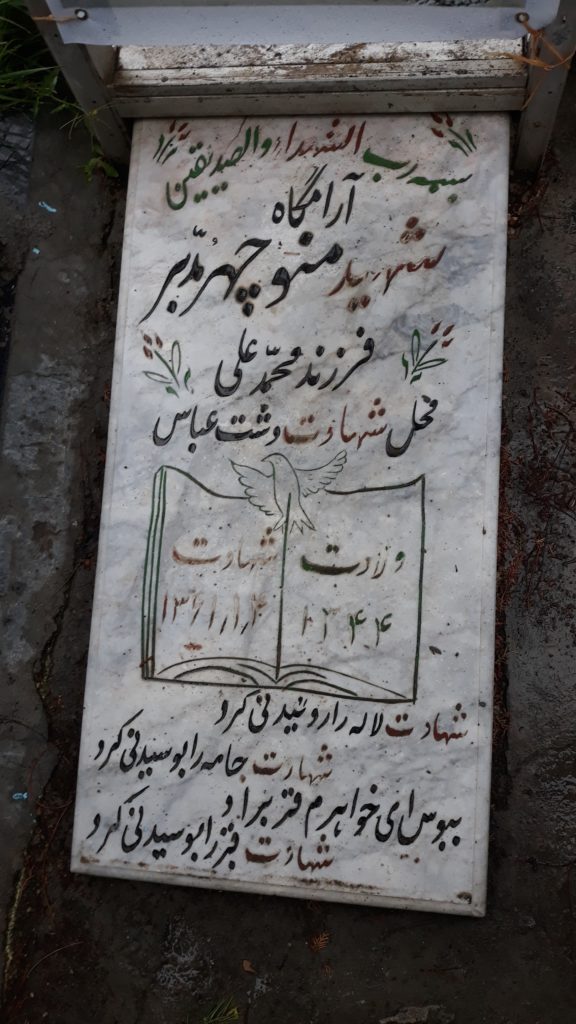 بسمه رب الشهداء والصدیقین
آرامگاه
شهید منوچهر مدبر
فرزند محمد علی
محل شهادت دشت عباس
ولادت
۱۳۴۴
شهادت
۱۳۶۱٫۱٫۴
شهادت لاله را روئیدنی کرد
شهادت جامه را بوسیدنی کرد
ببوس ای خواهرم قبر برادر
شهادت قبر را بوسیدنی کرد